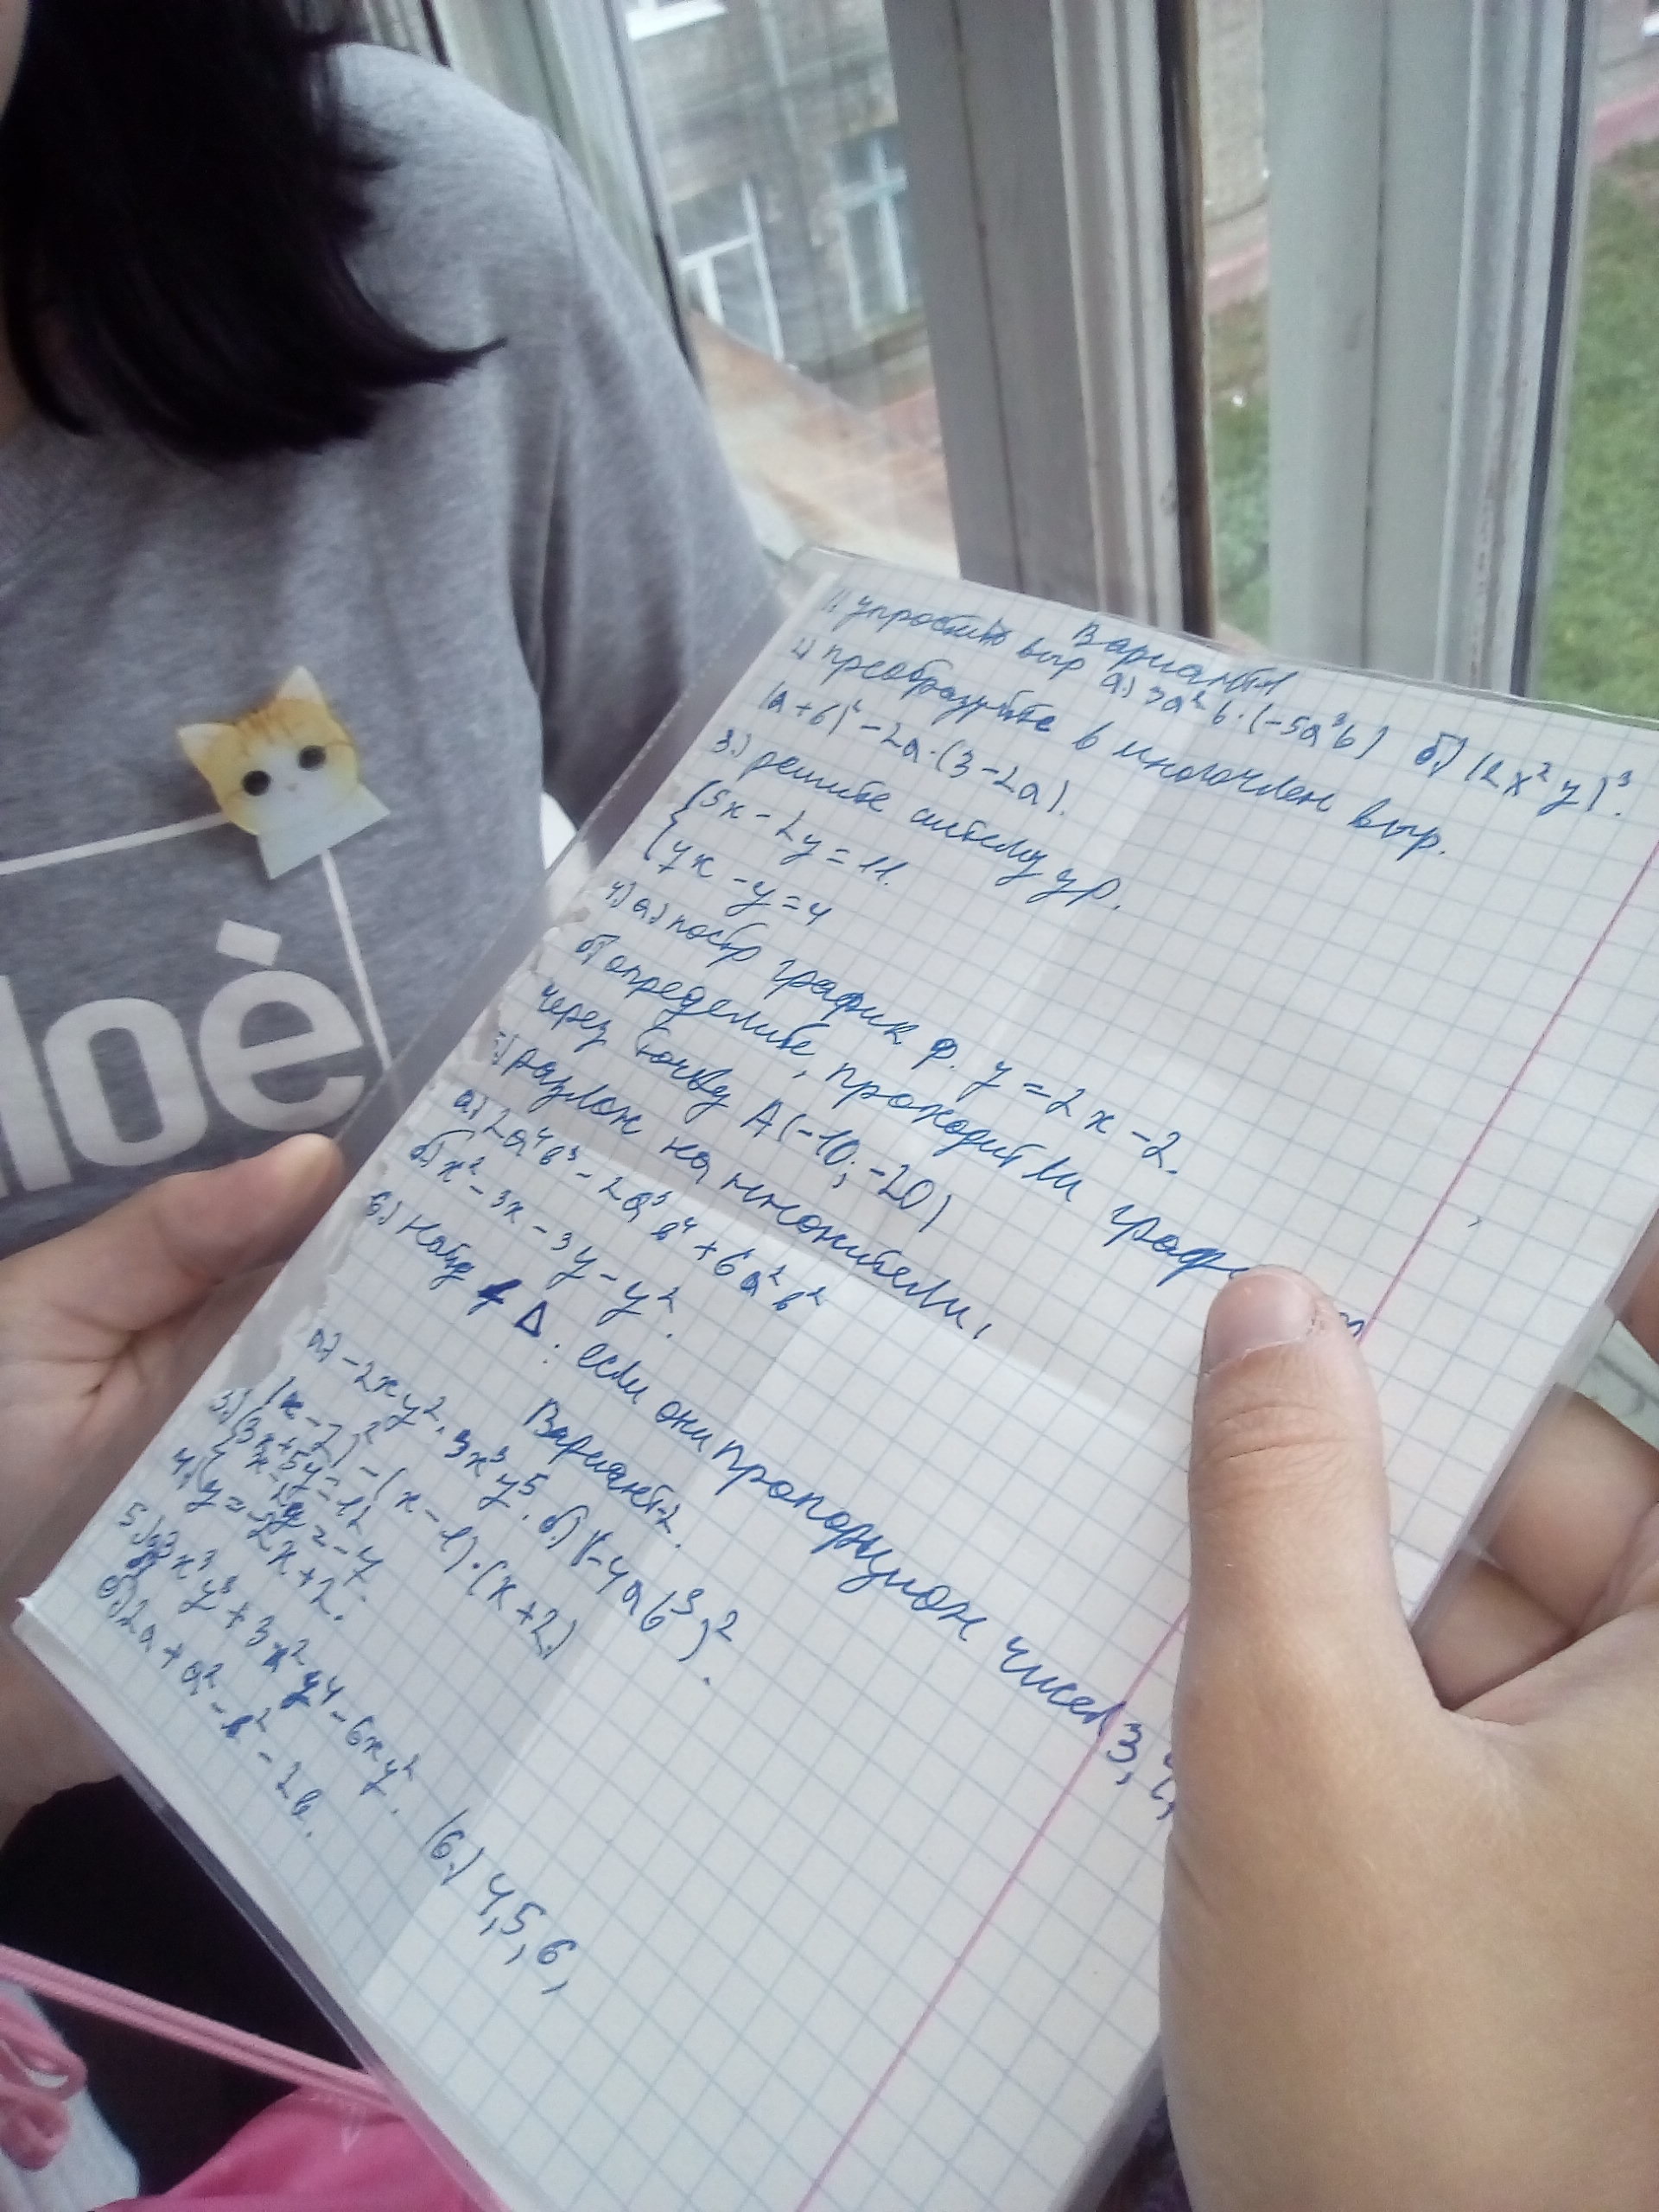 loè
Вариант-1
1. упростить выр а) 3a²b·(-5a³b) б) (2x²y)³.
2) преобразуйте в многочлен выр.
(a+6)² - 2a·(3-2a).
3.) решите систему ур.
{5x - 2y = 11.
{4x - y = 4
4) а) постр график ф. y = 2x - 2.
б) определите, проходит ли граф
через точку A(-10; -20)
5) разлож на множители,
а) 2a⁴b³ - 2a³b⁴ + 6a²b²
б) x² - 3x - 3y - y².
6.) Найд Δ: если они пропорцион чисел 3, 4,
Вариант-2.
а) -2xy²·3x³y⁵. б) (-4ab³)².
(x-7)² - (x-1)·(x+2)
3.) {3x+5y=12
{x-2y=-7
4) y=-2x+2.
5.) x³y³ + 3x²y⁴ - 6xy².
б) 2a + a² - b² - 2b.
(6.) 4, 5, 6,